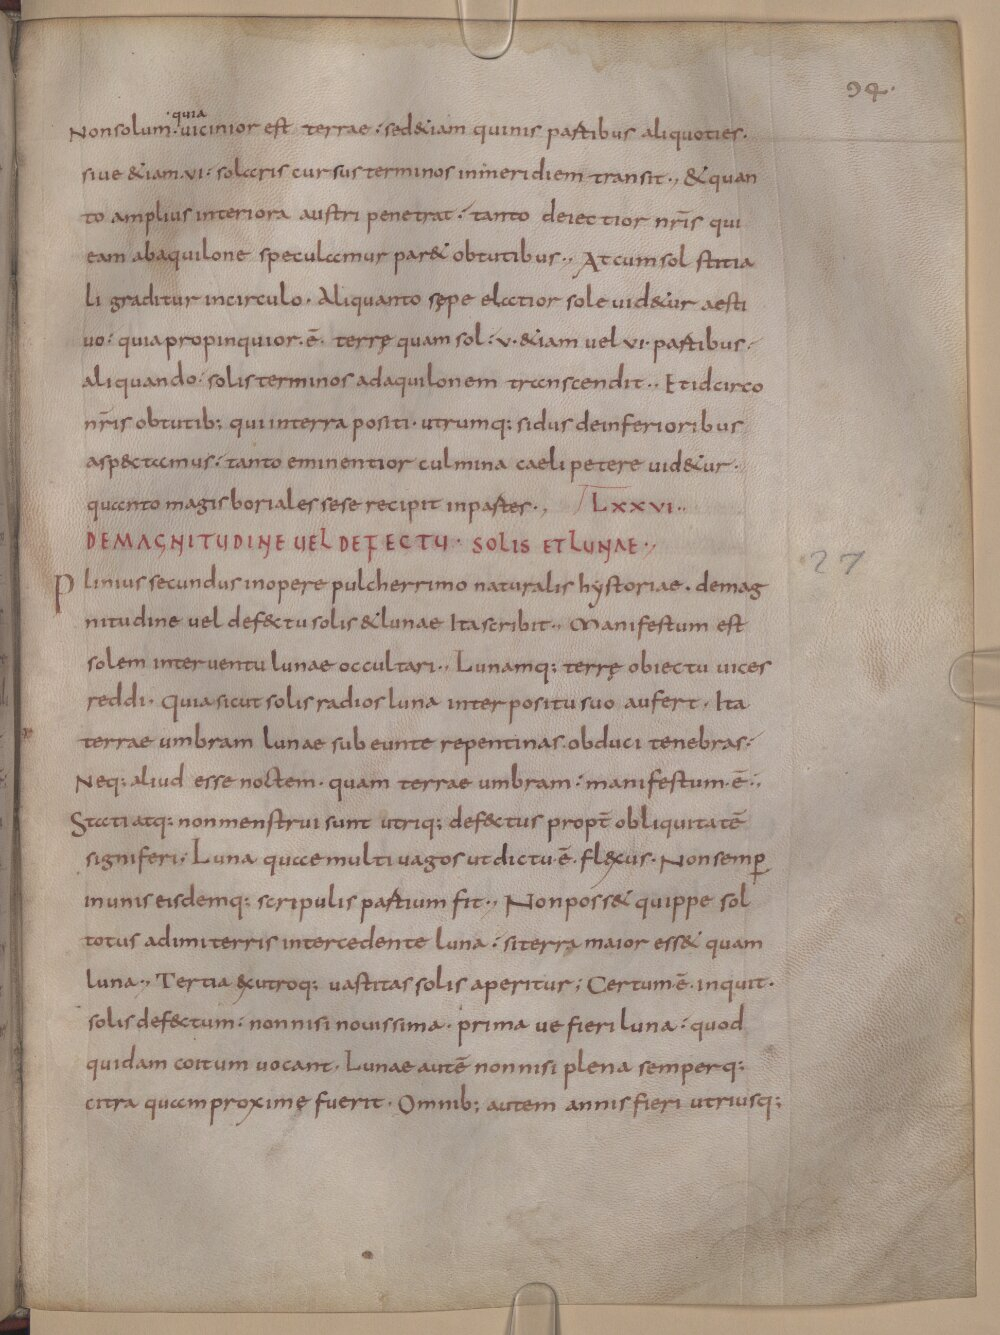 94.
quia
Non solum·vicinior est terrae· sed&iam quinis partibus aliquoties·
sive &iam·vi· solaris cursus terminos inmeridiem transit·, &quan
to amplius interiora austri penetrat· tanto deiectior nr̄is qui
eam abaquilone speculamur par& obtutibus·, At cum sol stitia
li graditur incirculo· Aliquanto sępe elatior sole vid&ur aesti
vo· quia propinquior·ē· terrę quam sol· v·&iam vel vi·partibus·
aliquando· solis terminos adaquilonem transcendit·, Et idcirco
nr̄is obtutib; qui interra positi· utrumq; sidus deinferioribus
asp&tamus· tanto eminentior culmina caeli petere vid&ur·
quanto magis boriales sese recipit inpartes·, LXXVI··
DE MAGNITUDINE UEL DEFECTU· SOLIS ET LUNAE·,
27
Plinius secundus inopere pulcherrimo naturalis hystoriae· demag
nitudine vel def&ctu solis &lunae Ita scribit·, Manifestum est
solem interventu lunae occultari·, Lunamq; terrę obiectu vices
reddi· Quia sicut solis radios luna interpositu suo aufert· Ita
terrae umbram lunae subeunte repentinas·obduci tenebras·
Neq; aliud esse noctem· quam terrae umbram· manifestum·ē·,
Statiatq; non menstrui sunt utriq; def&ctus propt̄ obliquitatē
signiferi; Luna quae multivagos ut dictu·ē· fl&xus· Non semp̱
in unis eisdemq; scripulis partium fit·, Non poss& quippe sol
totus adimi terris intercedente luna· si terra maior ess& quam
luna·, Tertia &xutroq; vastitas solis aperitur; Certumē·inquit·
solis def&ctum· non nisi novissima· prima ve fieri luna· quod
quidam coitum vocant· Lunae autē non nisi plena semperq;
citra quam proxime fuerit· Omnib; autem annis fieri utriusq;